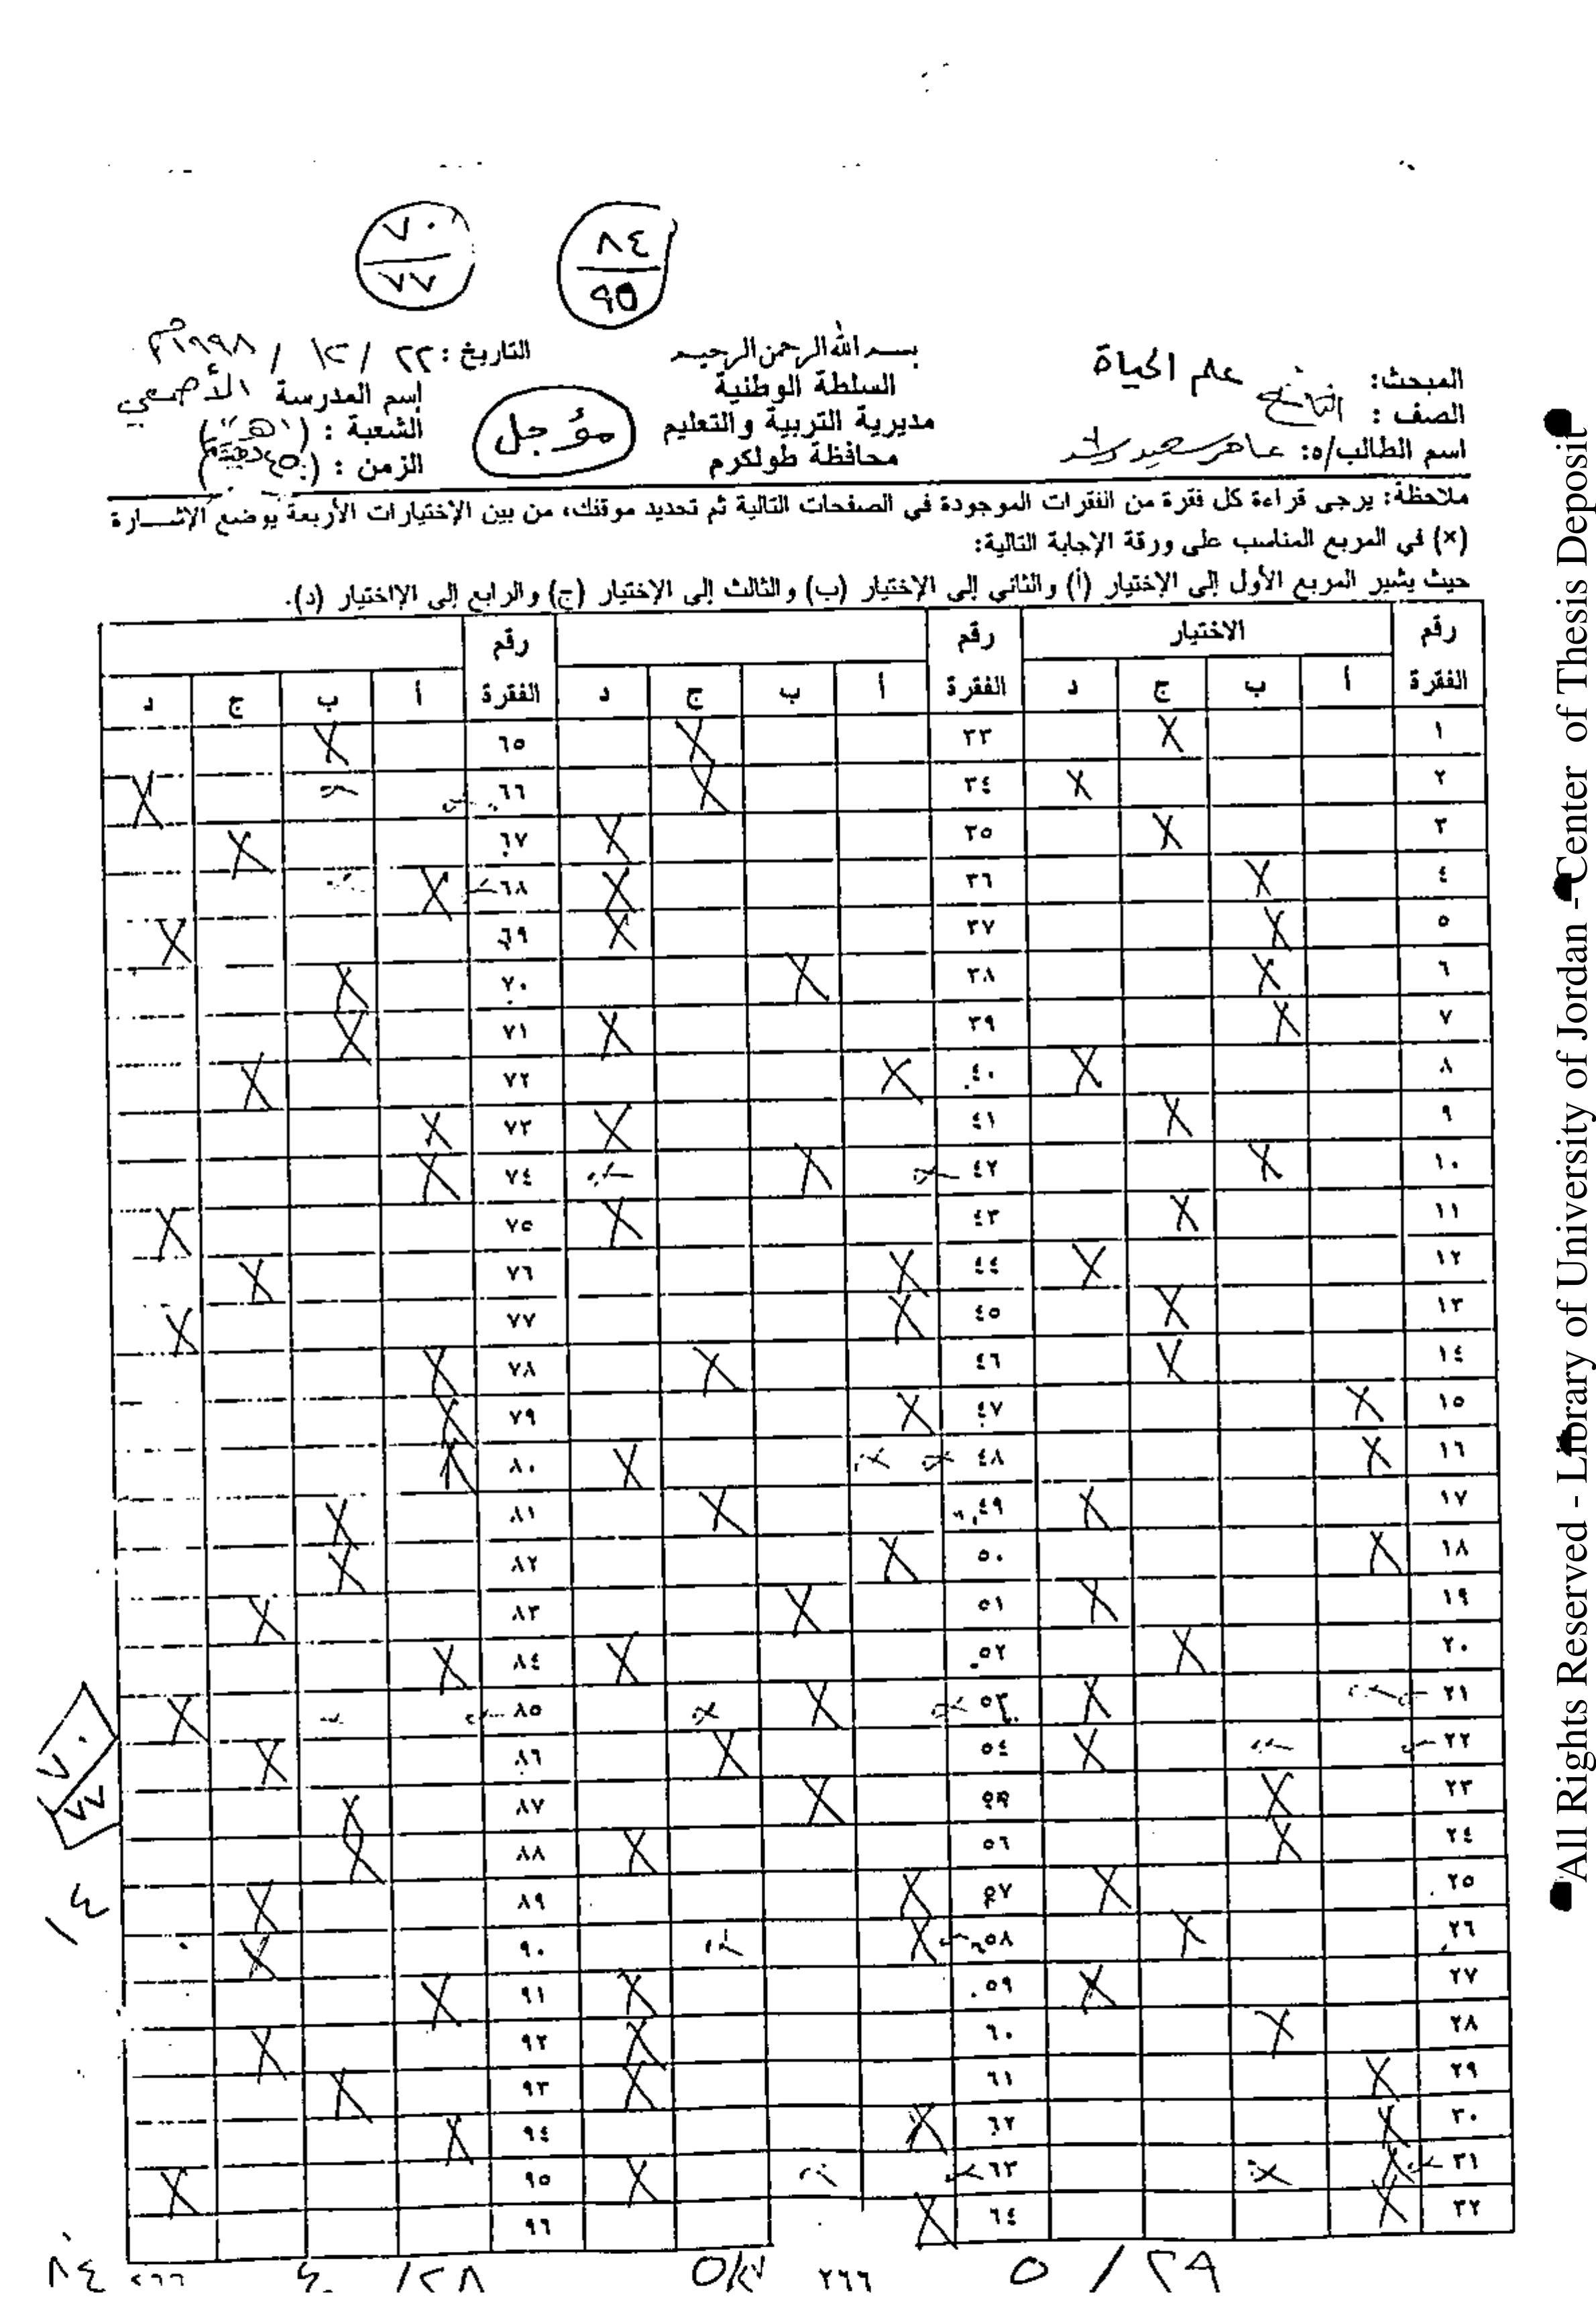 ٨٤
٩٥
٧٠
٧٧
المبحث: علم الحياة
الصف : التاسع
اسم الطالب/ه: سعيد
بسم الله الرحمن الرحيم
السلطة الوطنية
مديرية التربية والتعليم
محافظة طولكرم
مؤجل
التاريخ : ٢٢ / ١٢ / ١٩٩٨م
إسم المدرسة الأصمعي
الشعبة : (هـ)
الزمن :
ملاحظة: يرجى قراءة كل فقرة من الفقرات الموجودة في الصفحات التالية ثم تحديد موقفك، من بين الإختيارات الأربعة يوضع الإشارة
(×) في المربع المناسب على ورقة الإجابة التالية:
حيث يشير المربع الأول إلى الإختيار (أ) والثاني إلى الإختيار (ب) والثالث إلى الإختيار (ج) والرابع إلى الإاختيار (د).
رقم الاختيار رقم رقم
الفقرة أ ب ج د الفقرة أ ب ج د الفقرة أ ب ج د
١ X ٣٣ X ٦٥ X
٢ X ٣٤ X ٦٦ X
٣ X ٣٥ X ٦٧ X
٤ X ٣٦ X ٦٨ X
٥ X ٣٧ X ٦٩ X
٦ X ٣٨ X ٧٠ X
٧ X ٣٩ X ٧١ X
٨ X ٤٠ X ٧٢ X
٩ X ٤١ X ٧٣ X
١٠ X ٤٢ X ٧٤ X
١١ X ٤٣ X ٧٥ X
١٢ X ٤٤ X ٧٦ X
١٣ X ٤٥ X ٧٧ X
١٤ X ٤٦ X ٧٨ X
١٥ X ٤٧ X ٧٩ X
١٦ X ٤٨ X ٨٠ X
١٧ X ٤٩ X ٨١ X
١٨ X ٥٠ X ٨٢ X
١٩ X ٥١ X ٨٣ X
٢٠ X ٥٢ X ٨٤ X
٢١ X ٥٣ X ٨٥ X
٢٢ X ٥٤ X ٨٦ X
٢٣ X ٥٥ X ٨٧ X
٢٤ X ٥٦ X ٨٨ X
٢٥ X ٥٧ X ٨٩ X
٢٦ X ٥٨ X ٩٠ X
٢٧ X ٥٩ X ٩١ X
٢٨ X ٦٠ X ٩٢ X
٢٩ X ٦١ X ٩٣ X
٣٠ X ٦٢ X ٩٤ X
٣١ X ٦٣ X ٩٥ X
٣٢ X ٦٤ X ٩٦
٧٠
٧٧
٥ / ٢٩
٢٦٦
٢٨
٢٦٦
٨٤
All Rights Reserved - Library of University of Jordan - Center of Thesis Deposit